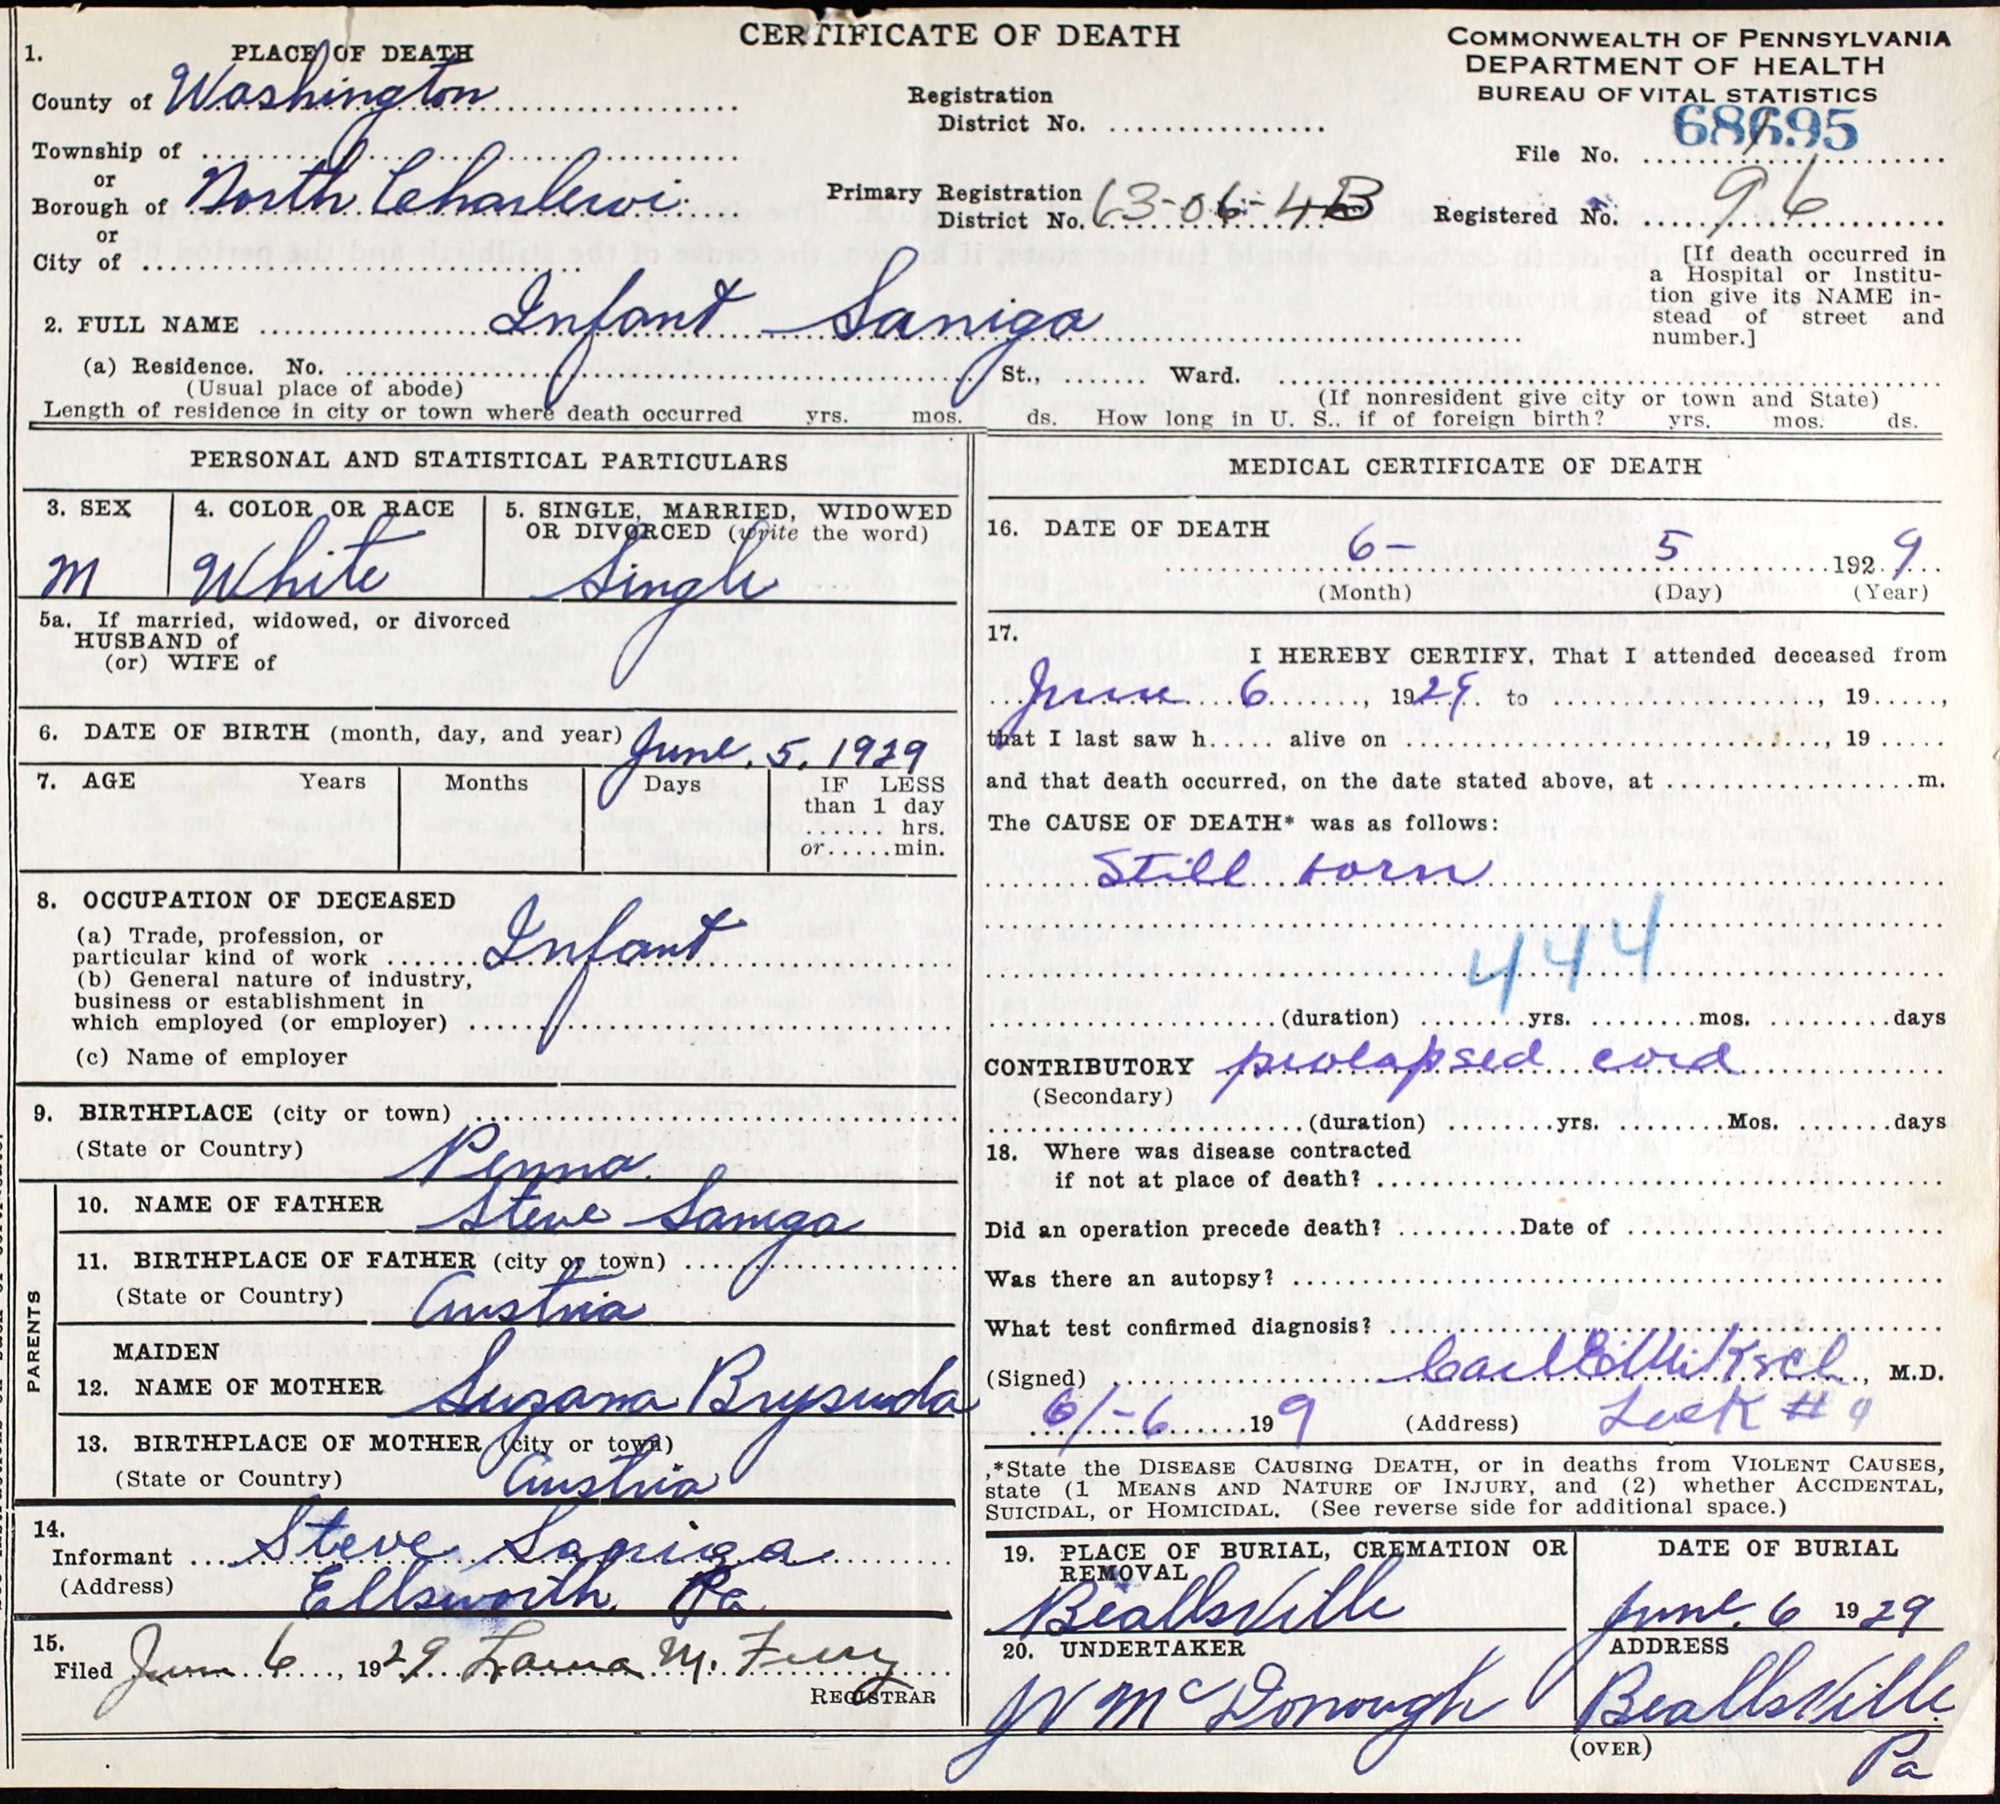 CERTIFICATE OF DEATH
COMMONWEALTH OF PENNSYLVANIA
DEPARTMENT OF HEALTH
BUREAU OF VITAL STATISTICS
1. PLACE OF DEATH
County of Washington
Township of
or
Borough of North Charleroi
or
City of
Registration
District No.
Primary Registration
District No. 63-06-4B
File No. 68695
Registered No. 96
[If death occurred in
a Hospital or Institu-
tion give its NAME in-
stead of street and
number.]
2. FULL NAME Infant Saniga
(a) Residence. No. St., Ward.
(Usual place of abode) (If nonresident give city or town and State)
Length of residence in city or town where death occurred yrs. mos. ds. How long in U. S., if of foreign birth? yrs. mos. ds.
PERSONAL AND STATISTICAL PARTICULARS
3. SEX 4. COLOR OR RACE 5. SINGLE, MARRIED, WIDOWED
OR DIVORCED (write the word)
M White Single
5a. If married, widowed, or divorced
HUSBAND of
(or) WIFE of
6. DATE OF BIRTH (month, day, and year) June 5, 1929
7. AGE Years Months Days IF LESS
than 1 day
hrs.
or.....min.
8. OCCUPATION OF DECEASED
(a) Trade, profession, or
particular kind of work Infant
(b) General nature of industry,
business or establishment in
which employed (or employer)
(c) Name of employer
9. BIRTHPLACE (city or town)
(State or Country) Penna.
PARENTS
10. NAME OF FATHER Steve Saniga
11. BIRTHPLACE OF FATHER (city or town)
(State or Country) Austria
MAIDEN
12. NAME OF MOTHER Suzana
13. BIRTHPLACE OF MOTHER (city or town)
(State or Country) Austria
14.
Informant Steve Saniga
(Address) Ellsworth, Pa
15.
Filed June 6, 1929 M.
REGISTRAR
MEDICAL CERTIFICATE OF DEATH
16. DATE OF DEATH
6- 5 1929
(Month) (Day) (Year)
17.
I HEREBY CERTIFY, That I attended deceased from
June 6, 1929 to , 19.....,
that I last saw h..... alive on , 19.....
and that death occurred, on the date stated above, at m.
The CAUSE OF DEATH* was as follows:
Still born
444
(duration) yrs. mos. days
CONTRIBUTORY prolapsed cord
(Secondary)
(duration) yrs. Mos. days
18. Where was disease contracted
if not at place of death?
Did an operation precede death? Date of
Was there an autopsy?
What test confirmed diagnosis?
(Signed) , M.D.
6/-6 199 (Address) Lock # 4
*State the DISEASE CAUSING DEATH, or in deaths from VIOLENT CAUSES,
state (1 MEANS AND NATURE OF INJURY, and (2) whether ACCIDENTAL,
SUICIDAL, or HOMICIDAL. (See reverse side for additional space.)
19. PLACE OF BURIAL, CREMATION OR
REMOVAL
Beallsville
DATE OF BURIAL
June 6 1929
20. UNDERTAKER
JV McDonough
ADDRESS
Beallsville
Pa
(OVER)